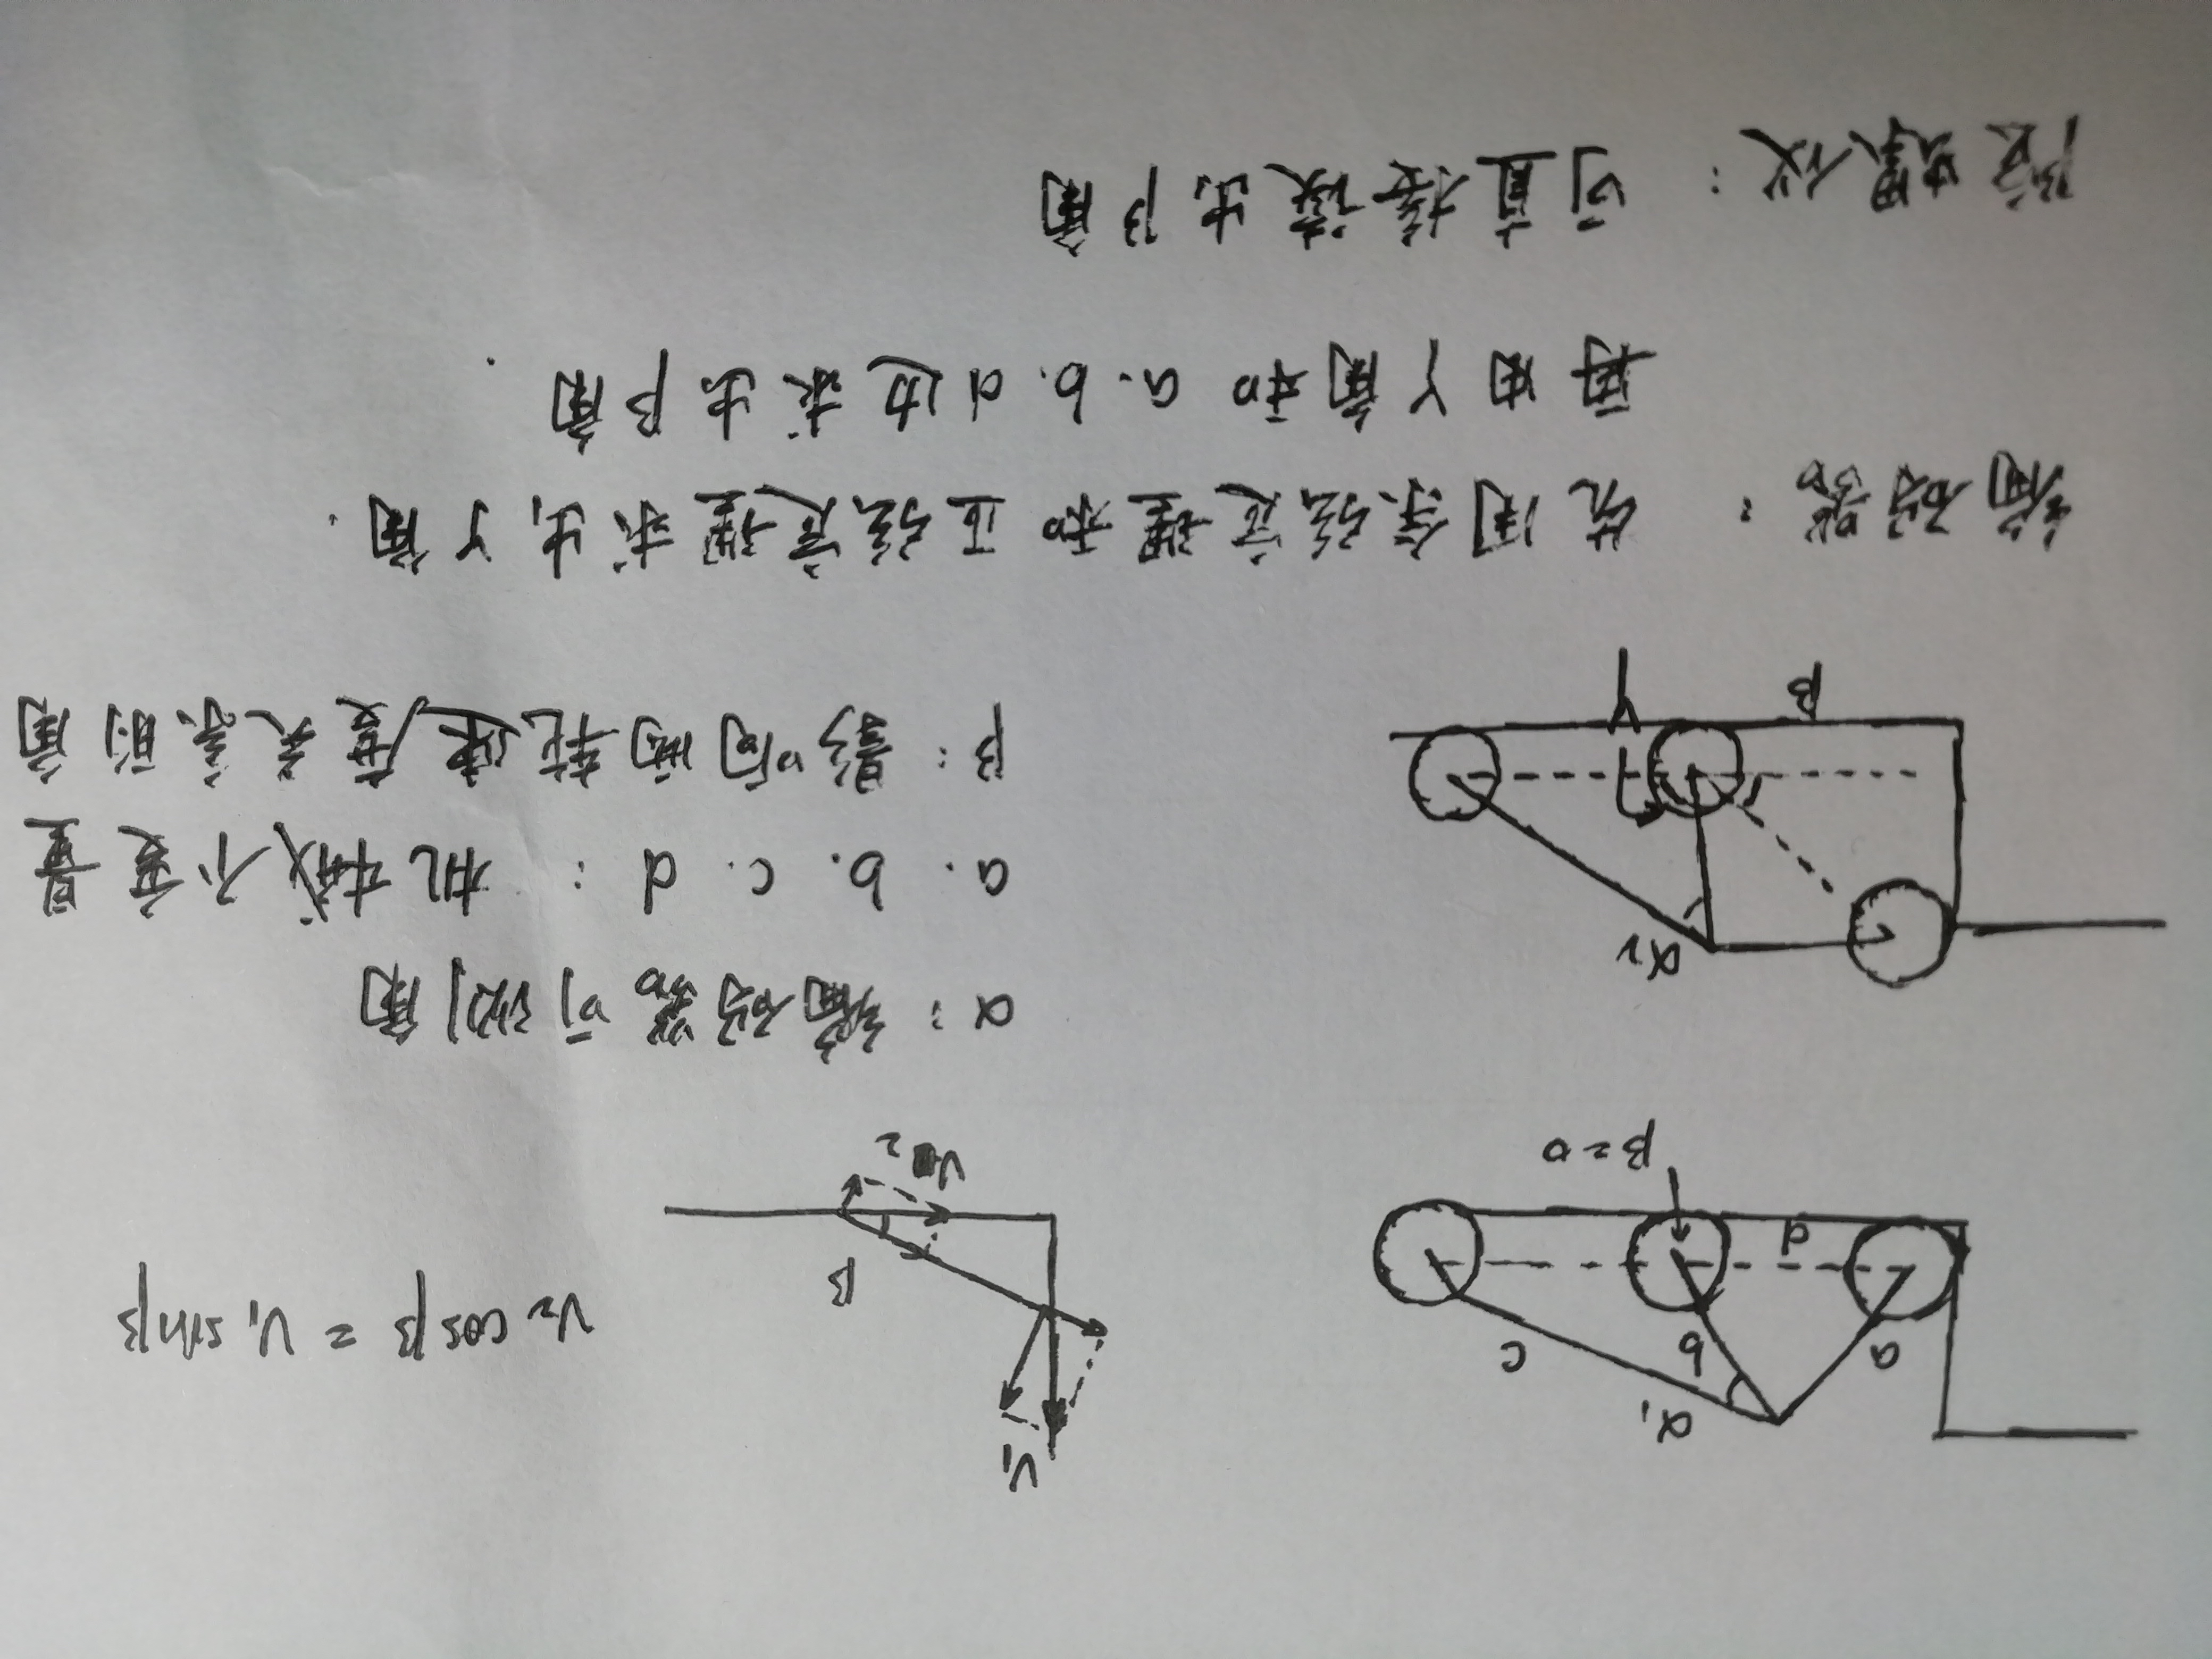 α₁
a
b
c
d
β=0
V₁
β
V₂
V₂ cosβ = V₁ sinβ
α₂
β
γ
α：编码器可测角
a. b. c. d：机械不变量
β：影响两轮速度关系的角
编码器：先用余弦定理和正弦定理求出γ角.
再由γ角和 a.b.d边求出β角.
陀螺仪：可直接读出β角